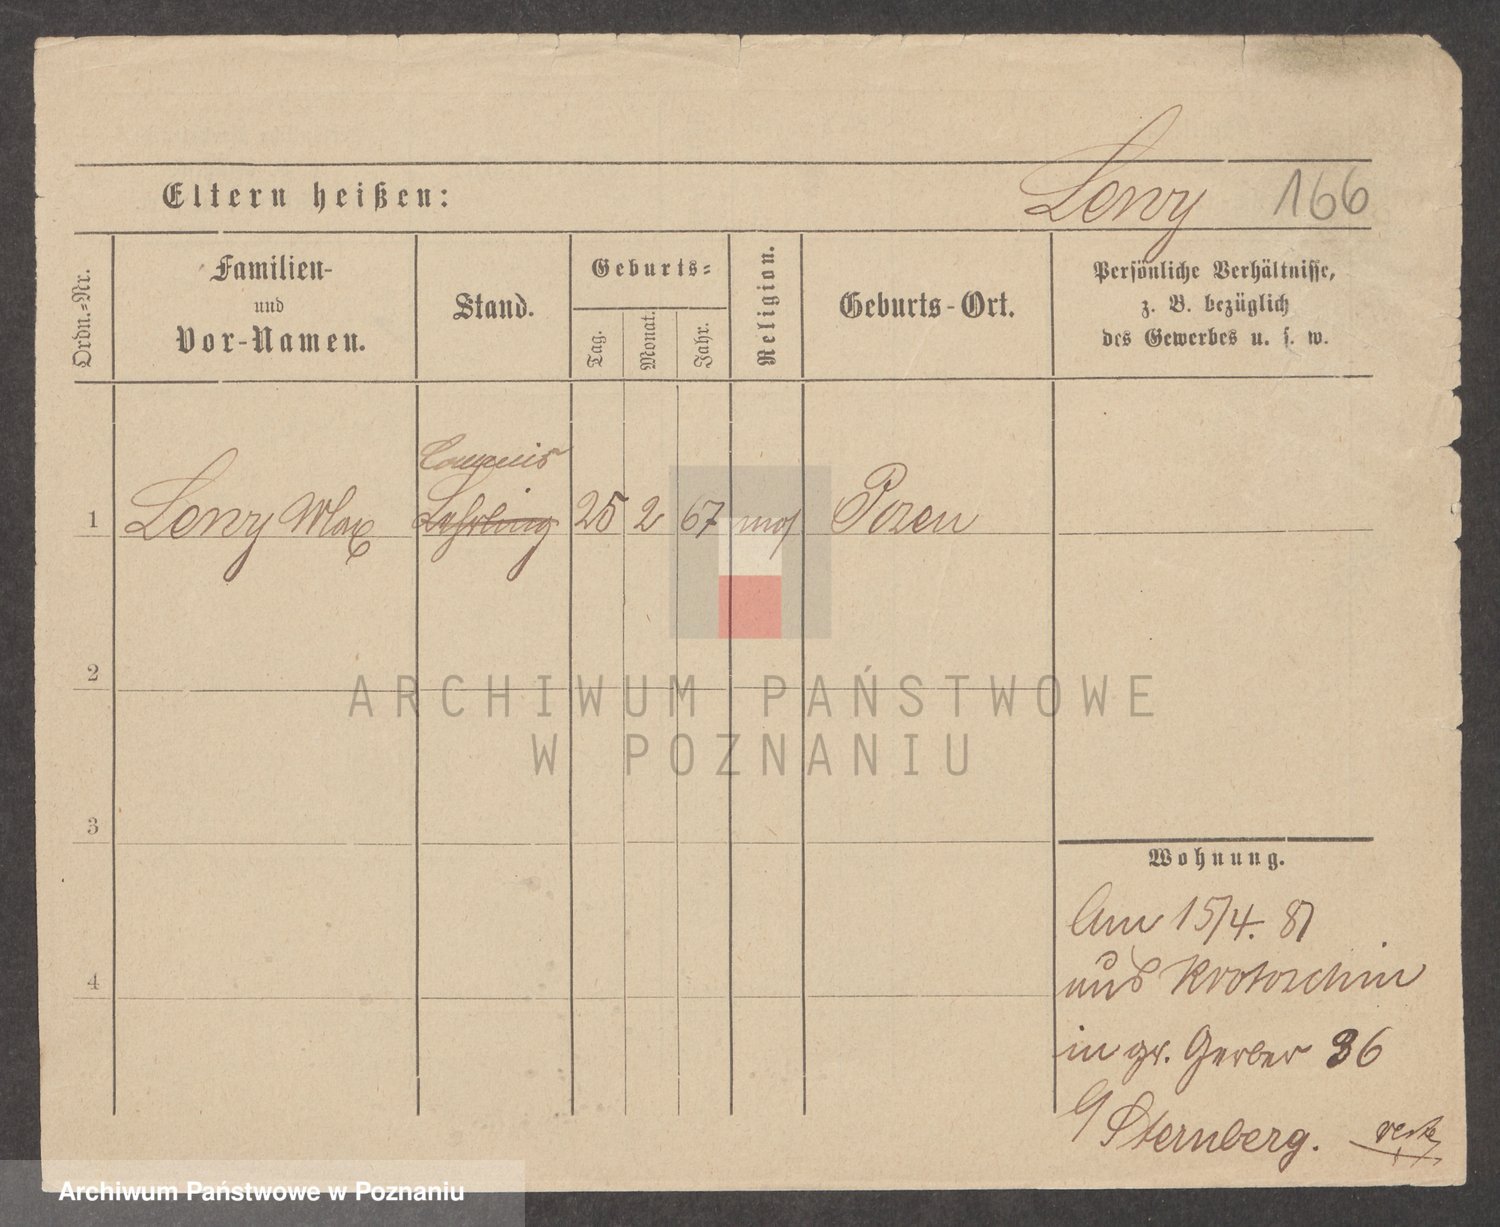 Lewy 166
Eltern heißen:
Ordn.-Nr.
Familien-
und
Vor-Namen.
Stand.
Geburts-
Tag.
Monat.
Jahr.
Religion.
Geburts-Ort.
Persönliche Verhältnisse,
z. B. bezüglich
des Gewerbes u. s. w.
Commis
1 Lewy Max Lehrling 25 2 67 mos Posen
2
3
4
Wohnung.
Am 15/4. 87
aus Krotoschin
in gr. Gerber 36
b/ Sternberg.
verte
ARCHIWUM PAŃSTWOWE
W POZNANIU
Archiwum Państwowe w Poznaniu